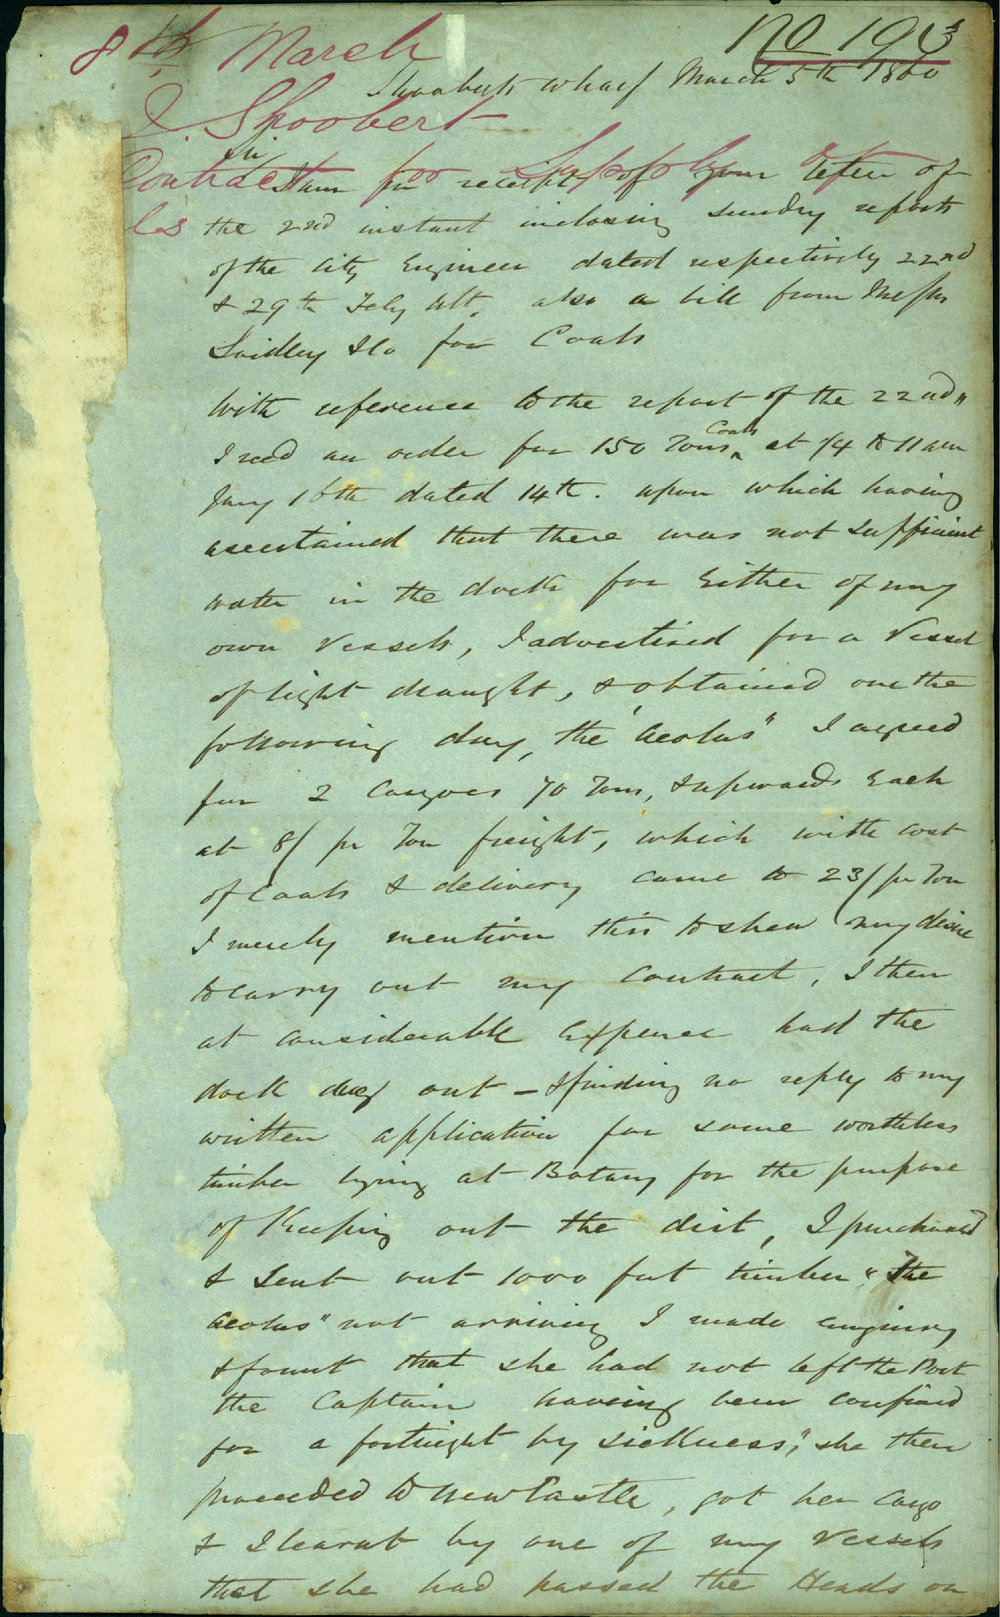 8th March
No 193
Shooberts Wharf March 5th 1860
J. Shoobert
Contract for Supply of
Sir
I am in receipt of your letter of
ls
the 22nd instant inclosing sundry reports
of the City Engineer dated respectively 22nd
& 29th Feby ult, also a bill from Messrs
Laidley & Co for Coals
With reference to the report of the 22nd,,
I recd an order for 150 Tons Coals at 1/4 to 11 am
Jany 16th dated 14th. upon which having
ascertained that there was not sufficient
water in the dock for Either of my
own Vessels, I advertised for a Vessel
of light draught, & obtained one the
following day, the "Aeolus" I agreed
for 2 Cargoes 70 Tons, & upwards Each
at 8/ pr Ton freight, which with cost
of Coals & delivery came to 23/ pr Ton
I merely mention this to shew my desire
to carry out my Contract, I then
at considerable Expence had the
dock dug out – & finding no reply to my
written application for some worthless
timber lying at Botany for the purpose
of Keeping out the dirt, I purchased
& sent out 1000 feet timber "The
Aeolus" not arriving I made enquiry
& found that she had not left the Port
the Captain having been confined
for a fortnight by sickness", she then
proceeded to NewCastle, got her Cargo
& I learnt by one of my Vessels
that she had passed the Heads on